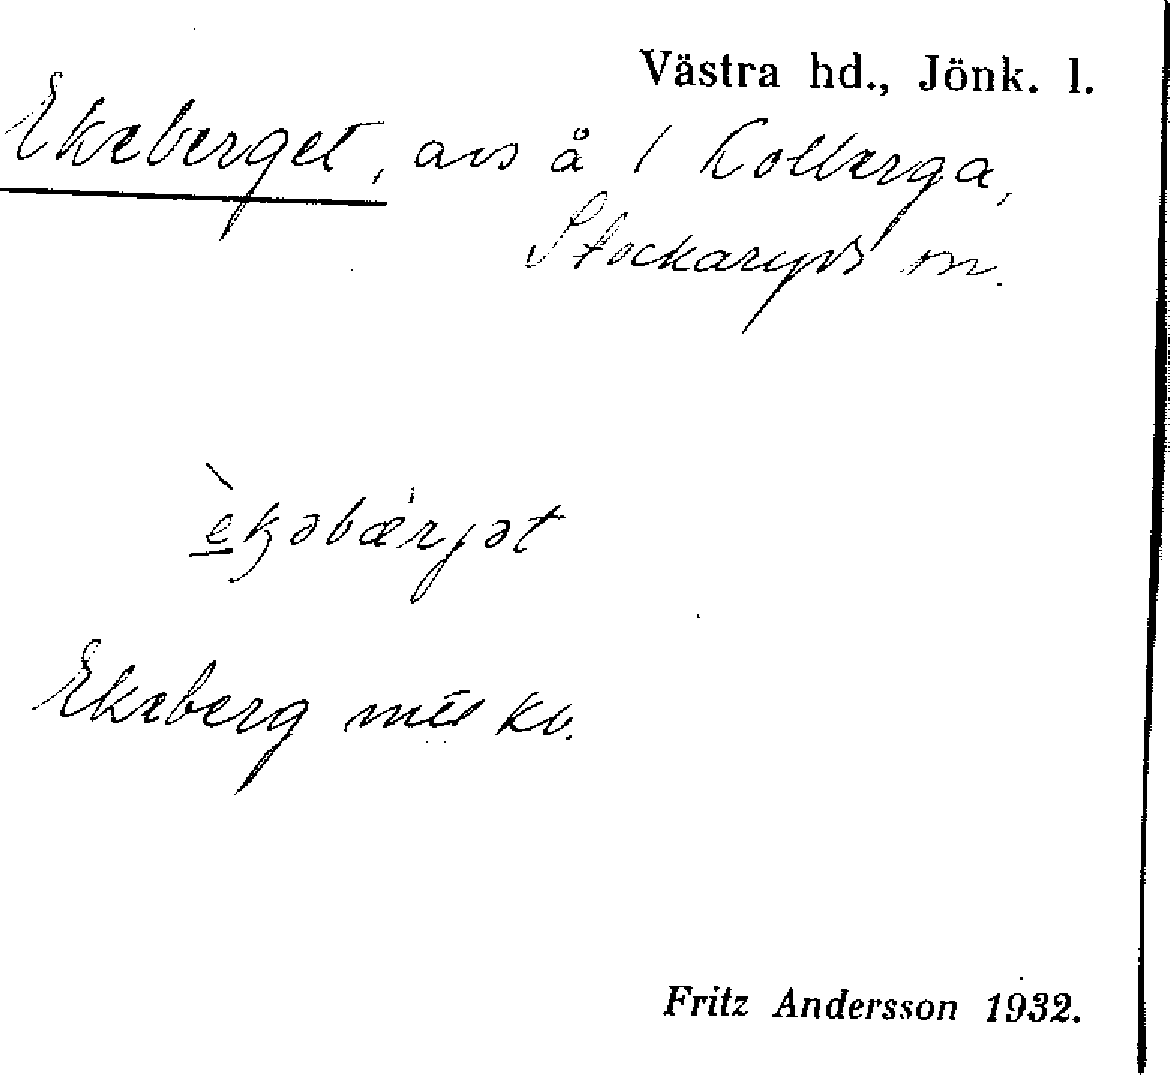 Västra hd., Jönk. l.
Ekeberget, avs å 1 Kollarga,
Stockaryds sn.
èkəbær̍jət
Ekeberg mtl kv.
Fritz Andersson 1932.